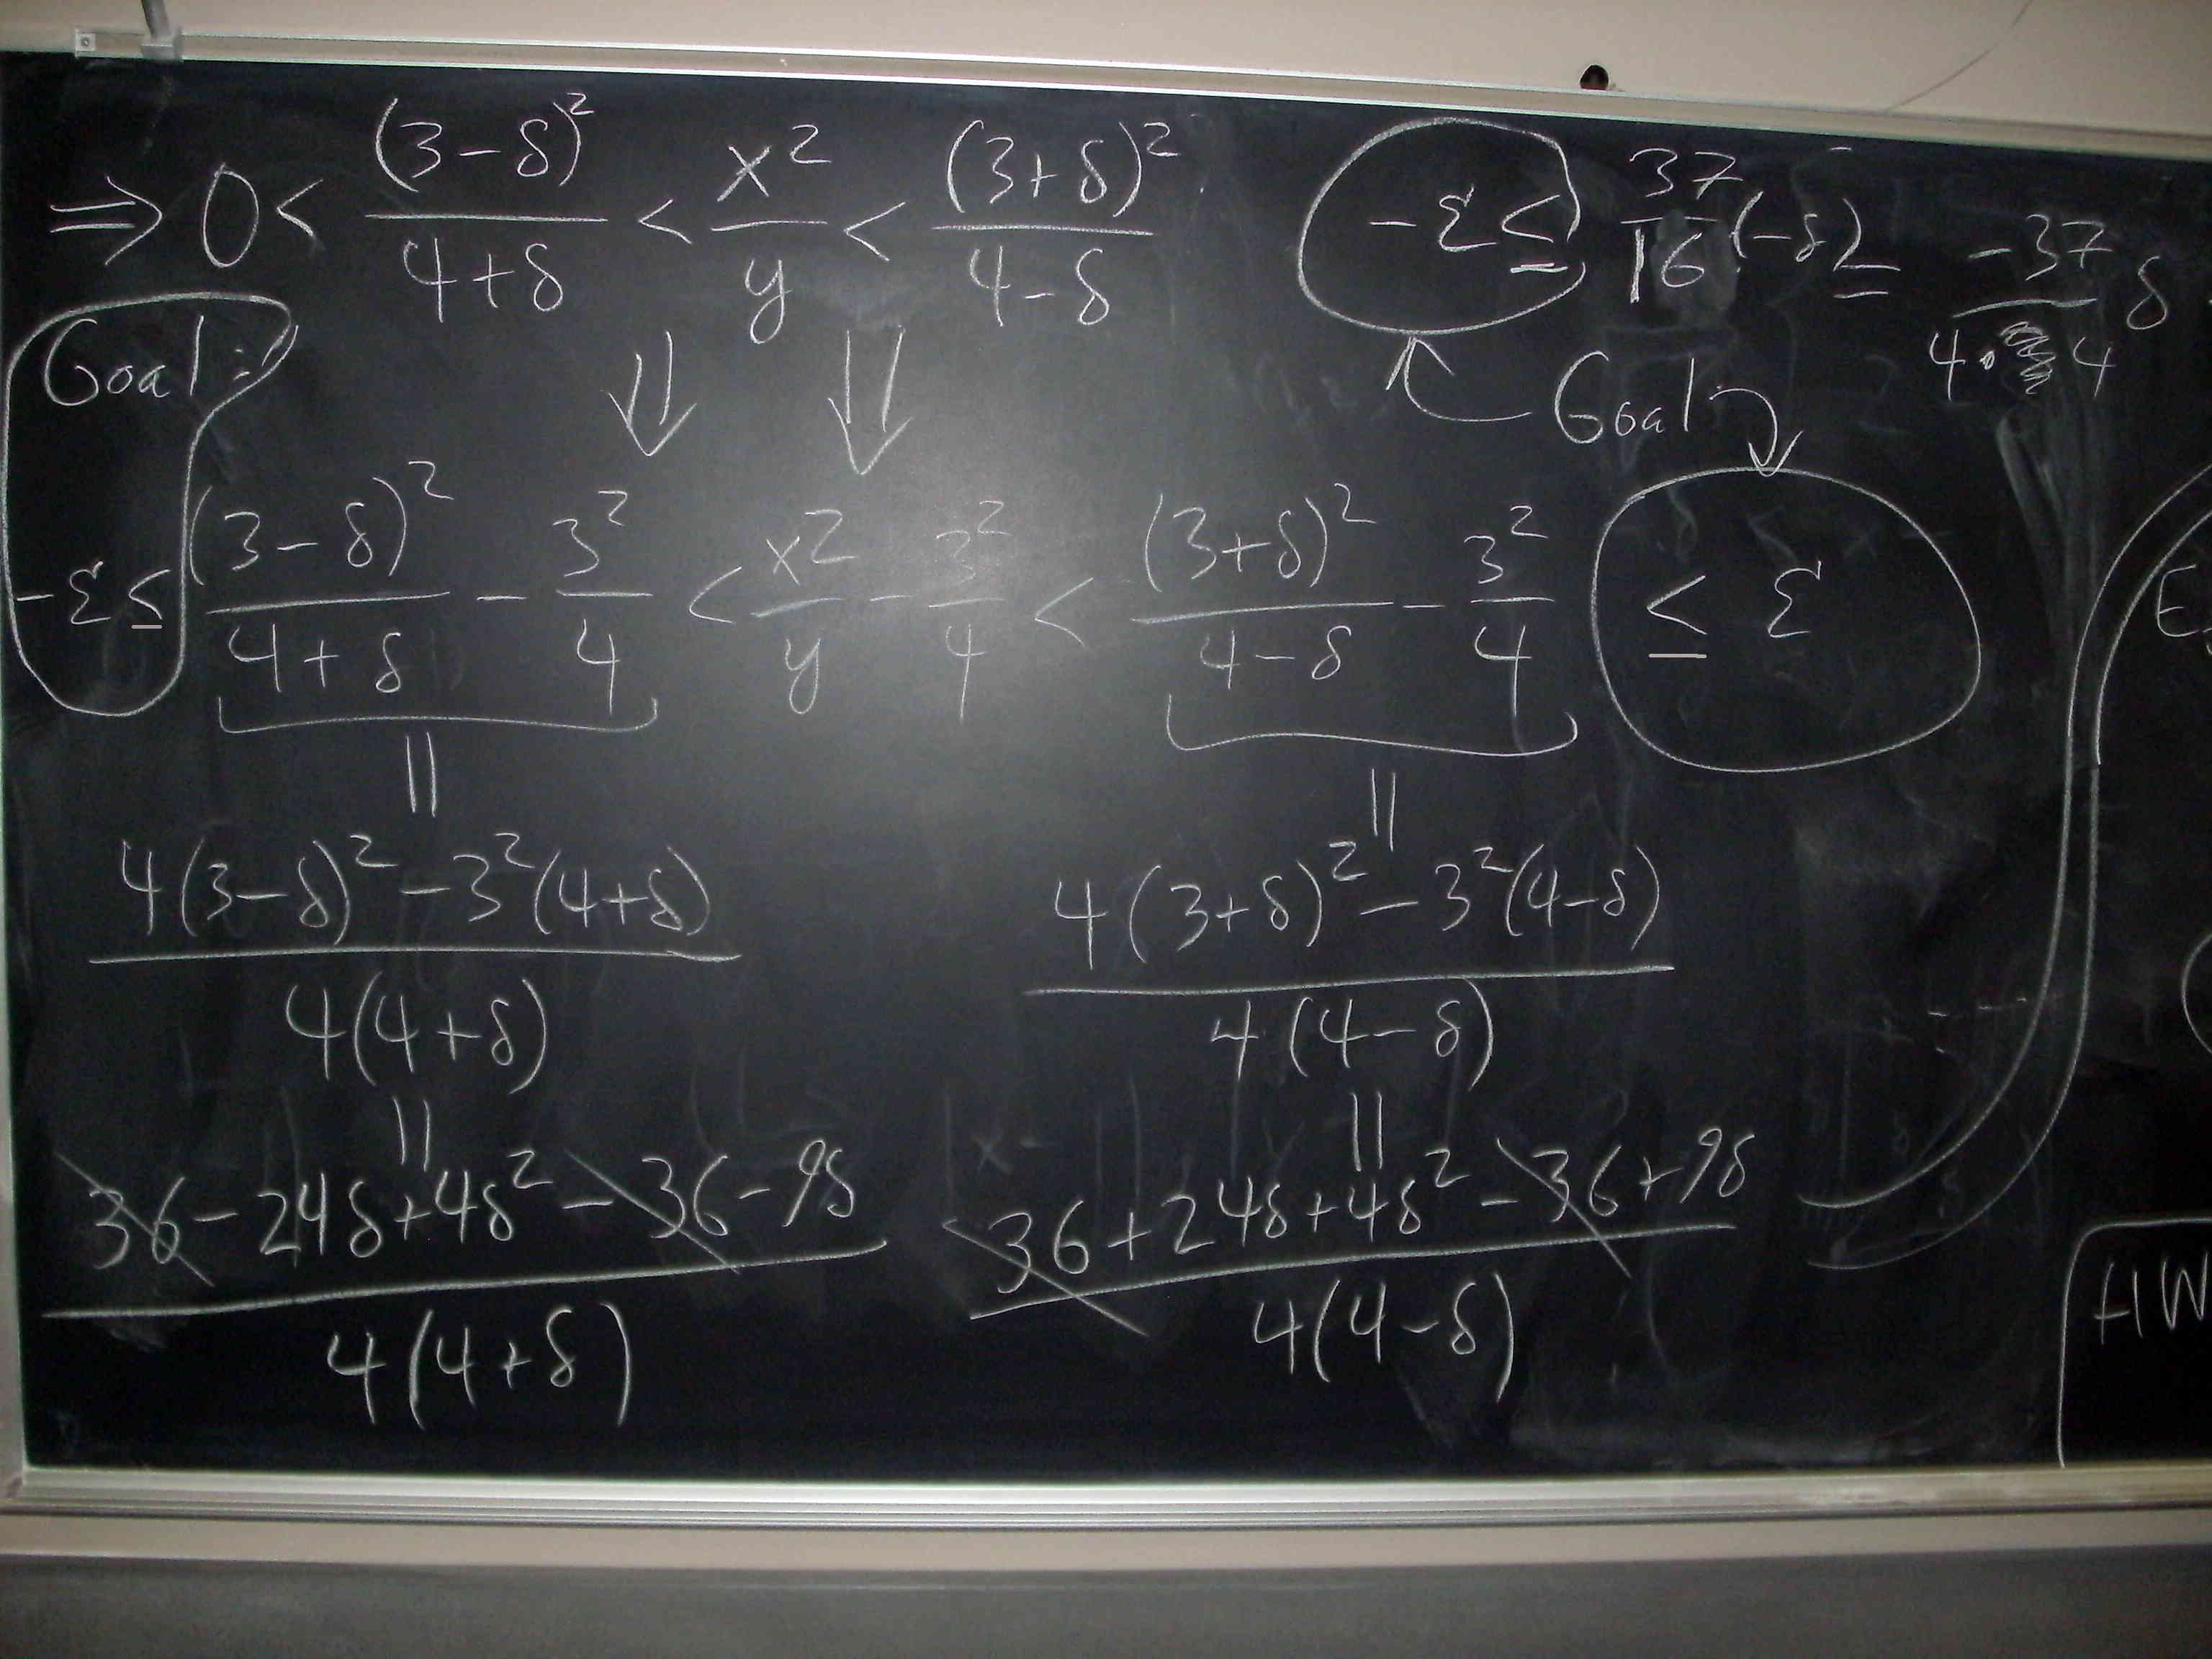 ⇒ 0 < (3-δ)²/(4+δ) < x²/y < (3+δ)²/(4-δ)
-ε ≤ 37/16 (-δ) = -37/(4·4) δ
Goal:
Goal
-ε ≤ (3-δ)²/(4+δ) - 3²/4 < x²/y - 3²/4 < (3+δ)²/(4-δ) - 3²/4 ≤ ε
|| ||
(4(3-δ)² - 3²(4+δ))/(4(4+δ))
(4(3+δ)² - 3²(4-δ))/(4(4-δ))
|| ||
(36 - 24δ + 4δ² - 36 - 9δ)/(4(4+δ))
(36 + 24δ + 4δ² - 36 + 9δ)/(4(4-δ))
HW